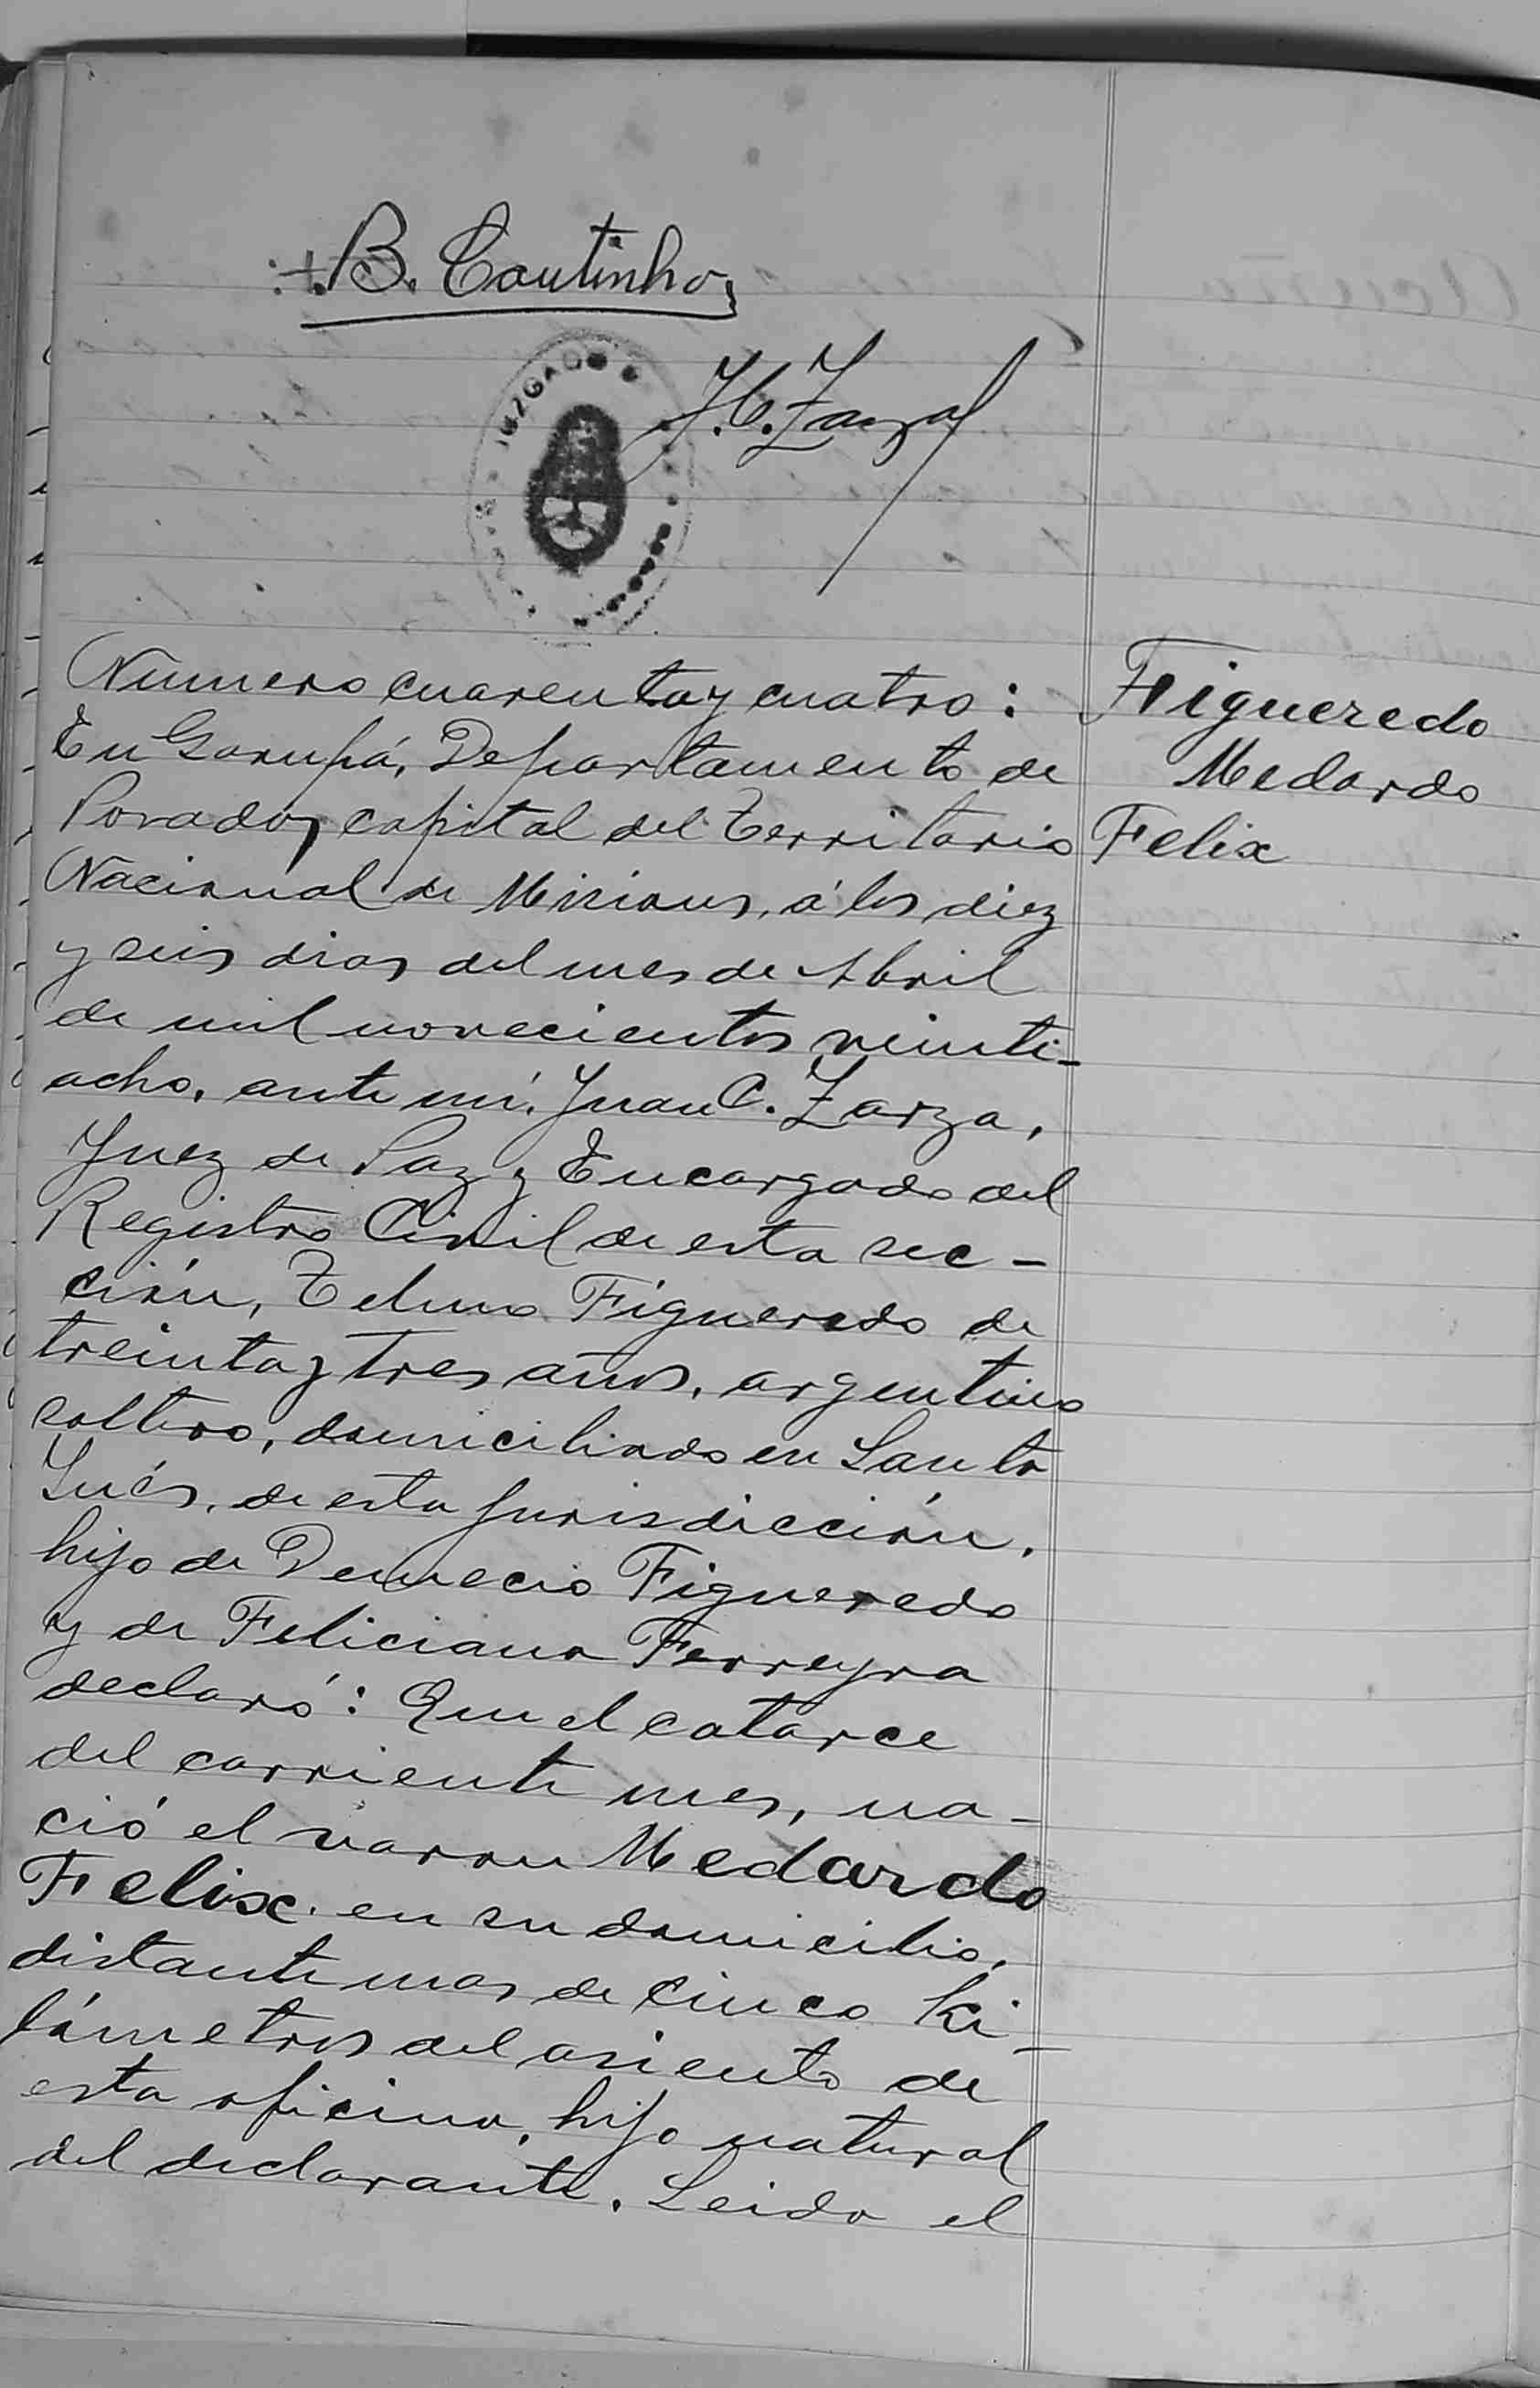 B. Coutinho
JUZGADO
J. C. Zarza
Número cuarenta y cuatro:
En Garupá, Departamento de
Posadas, capital del Territorio
Nacional de Misiones, á los diez
y seis dias del mes de Abril
de mil novecientos veinti-
ocho, ante mí, Juan C. Zarza,
Juez de Paz y Encargado del
Registro Civil de esta sec-
ción, Telmo Figueredo de
treinta y tres años, argentino
soltero, domiciliado en Santa
Inés, de esta jurisdicción,
hijo de Demecio Figueredo
y de Feliciana Ferreyra
declaró: Que el catorce
del corriente mes, na-
ció el varon Medardo
Felix en su domicilio,
distante mas de cinco ki-
lómetros del asiento de
esta oficina, hijo natural
del declarante. Leida el
Figueredo
Medardo
Felix